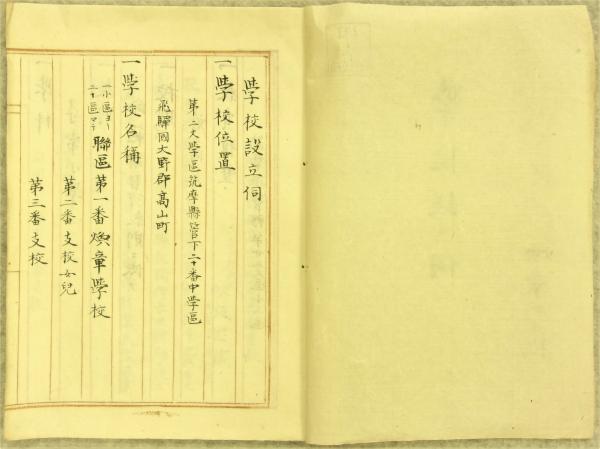 學校設立伺
一學校位置
第二大學區筑摩縣管下二十番中学區
飛驒國大野郡高山町
一學校名稱
一小區ヨリ二十區マテ聯區第一番煥章學校
第二番支校女兒
第三番支校